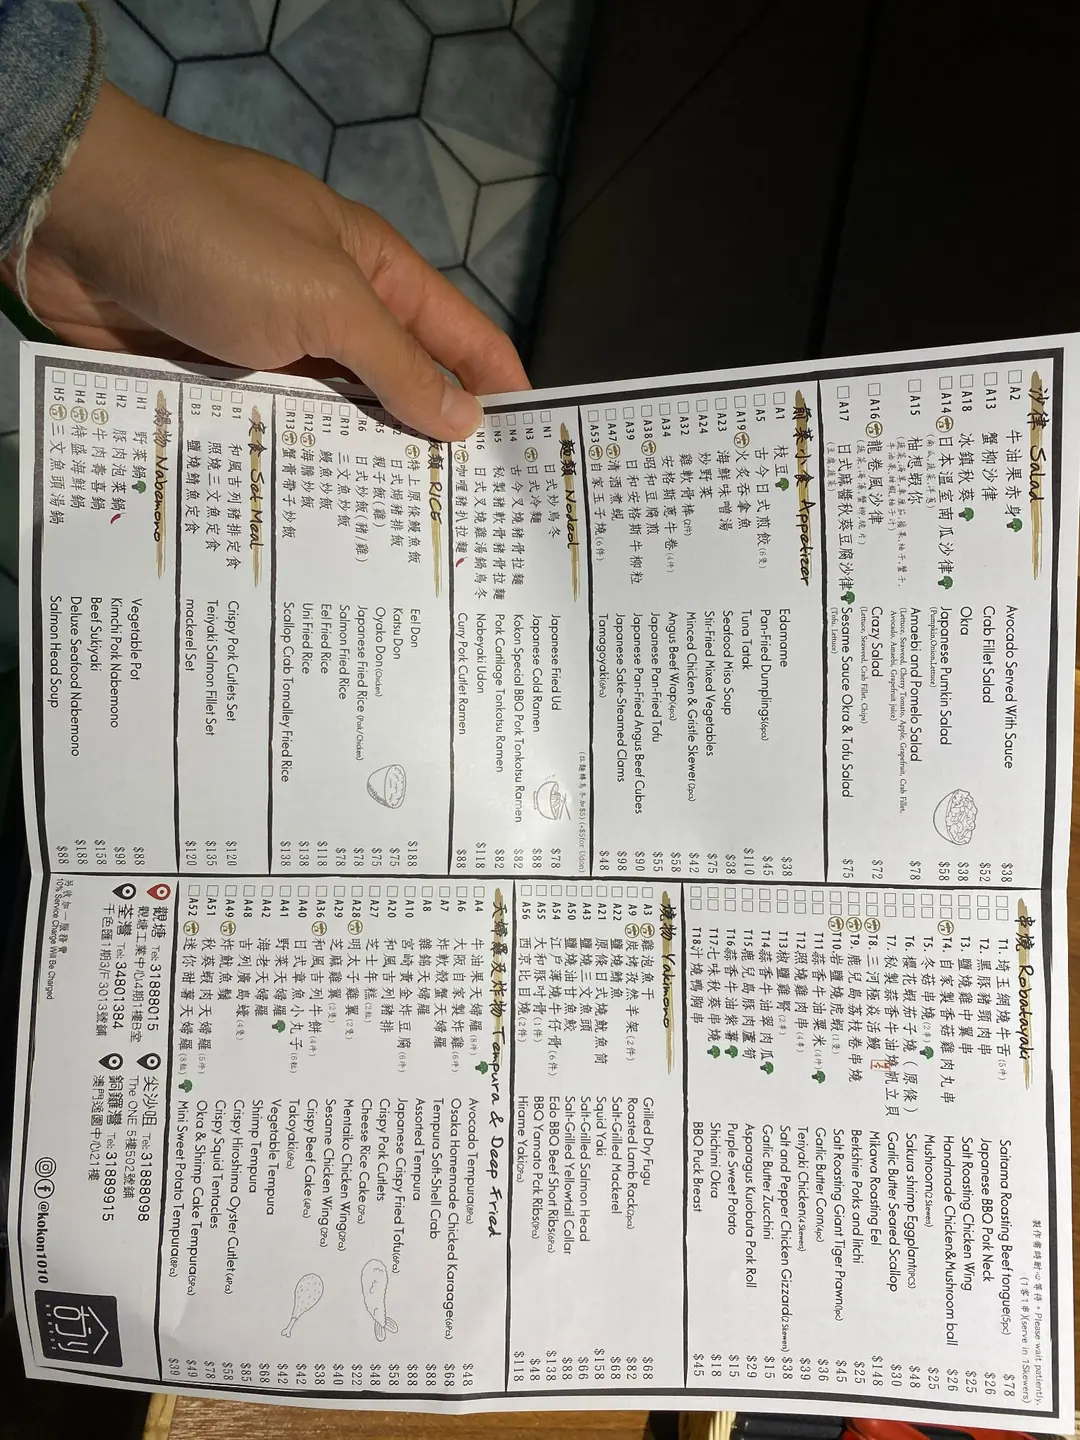 沙律 Salad
A2 牛油果赤身 Avocado Served With Sauce $38
A13 蟹柳沙律 Crab Fillet Salad $52
A18 冰鎮秋葵 Okra $38
A14 日本溫室南瓜沙律 Japanese Pumkin Salad $58
(Pumpkin,Onion,Lettuce)
A15 柚裡蝦你 Amaebi and Pomelo Salad $78
(Lettuce, Seaweed, Cherry Tomato, Apple, Grapefruit, Crab Fillet,
Avocado, Amaebi, Grapefruit juice)
A16 龍卷風沙律 Crazy Salad $72
(Lettuce, Seaweed, Crab Fillet, Chips)
A17 日式麻醬秋葵豆腐沙律 Sesame Sauce Okra & Tofu Salad $75
(Tofu, Lettuce)
前菜小食 Appetizer
A1 枝豆 Edamame $38
A5 古今日式煎餃 Pan-Fried Dumplings(6pcs) $45
A19 火炙吞拿魚 Tuna Tatak $110
A23 海鮮味噌湯 Seafood Miso Soup $38
A24 炒野菜 Stir-Fried Mixed Vegetables $75
A32 雞軟骨棒(2件) Minced Chicken & Gristle Skewer(2pcs) $42
A34 安格斯蔥牛卷(4件) Angus Beef Wrap(4pcs) $58
A38 昭和豆腐煎 Japanese Pan-Fried Tofu $55
A39 日和安格斯牛柳粒 Japanese Pan-Fried Angus Beef Cubes $90
A47 清酒煮蜆 Japanese Sake-Steamed Clams $98
A53 自家玉子燒(6件) Tamagoyaki(6Pcs) $48
麵類 Nodel
(拉麵轉烏冬加$5) (+$5for Udon)
N1 日式炒烏冬 Japanese Fried Ud $78
N3 日式冷麵 Japanese Cold Ramen $88
N4 古今叉燒豬骨拉麵 Kokon Special BBQ Pork Tonkotsu Ramen $82
N5 秘製豬軟骨豬骨拉麵 Pork Cartilage Tonkotsu Ramen $82
N16 日式叉燒雞湯鍋烏冬 Nabeyaki Udon $118
咖喱豬扒拉麵 Curry Pork Cutlet Ramen $88
飯類 RICE
特上原條鰻魚飯 Eel Don $188
日式焗豬排飯 Katsu Don $75
R5 親子飯(雞) Oyako Don(Chicken) $75
R6 日式炒飯(豬/雞) Japanese Fried Rice (Pork/Chicken) $78
R10 三文魚炒飯 Salmon Fried Rice $78
R11 鰻魚炒飯 Eel Fried Rice $118
R12 海膽炒飯 Uni Fried Rice $138
R13 蟹膏帶子炒飯 Scallop Crab Tomalley Fried Rice $138
定食 Sat Meal
B1 和風吉列豬排定食 Crispy Pork Cutlets Set $120
B2 照燒三文魚定食 Teriyaki Salmon Fillet Set $135
B3 鹽燒鯖魚定食 mackerel Set $120
鍋物 Nabemono
H1 野菜鍋 Vegetable Pot $88
H2 豚肉泡菜鍋 Kimchi Pork Nabemono $98
H3 牛肉壽喜鍋 Beef Sukiyaki $158
H4 特盛海鮮鍋 Deluxe Seafood Nabemono $188
H5 三文魚頭湯鍋 Salmon Head Soup $88
另收加一服務費
10% Service Charge Will Be Charged
串燒 Robatayaki
製作需時耐心等待。Please wait patiently.
(1客1串)(serve in 1Skewers)
T1. 埼玉網燒牛舌(5件) Saitama Roasting Beef tongue(5pc) $78
T2. 黑豚豬頸肉串 Japanese BBQ Pork Neck $26
T3. 鹽燒雞中翼串 Salt Roasting Chicken Wing $25
T4. 自家製香菇雞肉丸串 Handmade Chicken&Mushroom ball $26
T5. 冬菇串燒(2串) Mushroom(2 Skewers) $25
T6. 櫻花蝦茄子燒(原條) Sakura shrimp Eggplant(1PCS) $48
T7. 秘製蒜香牛油燒帆立貝 Garlic Butter Seared Scallop $30
T8. 三河極炎活鰻 Mikawa Roasting Eel $148
T9. 鹿兒島荔枝卷串燒 Berkshire Pork and linchi $25
T10. 岩鹽燒虎蝦(1隻) Salt Roasting Giant Tiger Prawn(1pc) $45
T11. 蒜香牛油粟米(4件) Garlic Butter Corn(4pc) $36
T12. 照燒雞肉串(4串) Teriyaki Chicken(4 Skewers) $39
T13. 椒鹽雞腎(2串) Salt and Pepper Chicken Gizzard(2 Skewers) $38
T14. 蒜香牛油翠肉瓜 Garlic Butter Zucchini $15
T15. 鹿兒島豚肉蘆筍 Asparagus Kurobuta Pork Roll $29
T16. 蒜香牛油紫薯 Purple Sweet Potato $15
T17. 七味秋葵串燒 Shichimi Okra $18
T18. 汁燒鴨胸串 BBQ Puck Breast $45
燒物 Yakimono
A3 雞泡魚干 Grilled Dry Fugu $68
A9 炭烤孜然羊架(2件) Roasted Lamb Rack(2pcs) $82
A22 鹽燒鯖魚 Salt-Grilled Mackerel $68
A21 原條日式燒魷魚筒 Squid Yaki $158
A43 鹽燒三文魚頭 Salt-Grilled Salmon Head $66
A50 鹽燒油甘魚鮫 Salt-Grilled Yellowtail Collar $88
A54 江戶薄燒牛仔骨(6件) Edo BBQ Beef Short Ribs(6Pcs) $138
A55 大和豚吋骨(1件) BBQ Yamato Pork Ribs(1Pcs) $48
A56 西京比目燒(2件) Hirame Yaki(2Pcs) $118
天婦羅及炸物 Tempura & Deep Fried
A4 牛油果天婦羅(8件) Avocado Tempura(8Pcs) $48
A6 大阪自家製炸雞(6件) Osaka Homemade Chicken Karaage(6Pcs) $68
A7 炸軟殼蟹天婦羅 Tempura Soft-Shell Crab $88
A8 雜錦天婦羅 Assorted Tempura $88
A10 宮崎黃金炸豆腐(6件) Japanese Crispy Fried Tofu(6Pcs) $58
A20 和風吉列豬排 Crispy Pork Cutlets $88
A27 芝士年糕(2粒) Cheese Rice Cake(2Pcs) $42
A28 明太子雞翼(2隻) Mentaiko Chicken Wing(2Pcs) $22
A29 芝麻雞翼(2隻) Sesame Chicken Wing(2Pcs) $40
A36 和風吉列牛餅(4件) Crispy Beef Cake(4Pcs) $38
A40 日式章魚小丸子(6粒) Takoyaki(6Pcs) $42
A41 野菜天婦羅 Vegetable Tempura $42
A42 海老天婦羅 Shrimp Tempura $68
A48 吉列廣島蠔(4隻) Crispy Hiroshima Oyster Cutlet(4Pcs) $85
A49 炸魷魚鬚 Crispy Squid Tentacles $58
A51 秋葵蝦肉天婦羅(5件) Okra & Shrimp Cake Tempura(5Pcs) $78
A52 迷你甜薯天婦羅(8粒) Mini Sweet Potato Tempura(8Pcs) $49
$39
觀塘 Tel: 31888015
觀塘工業中心4期1樓B室
尖沙咀 Tel: 31888098
The ONE 5樓502號舖
荃灣 Tel: 34801384
千色匯1期3/F 3013號舖
銅鑼灣 Tel: 31889915
澳門逸園中心31樓
@kokon1010